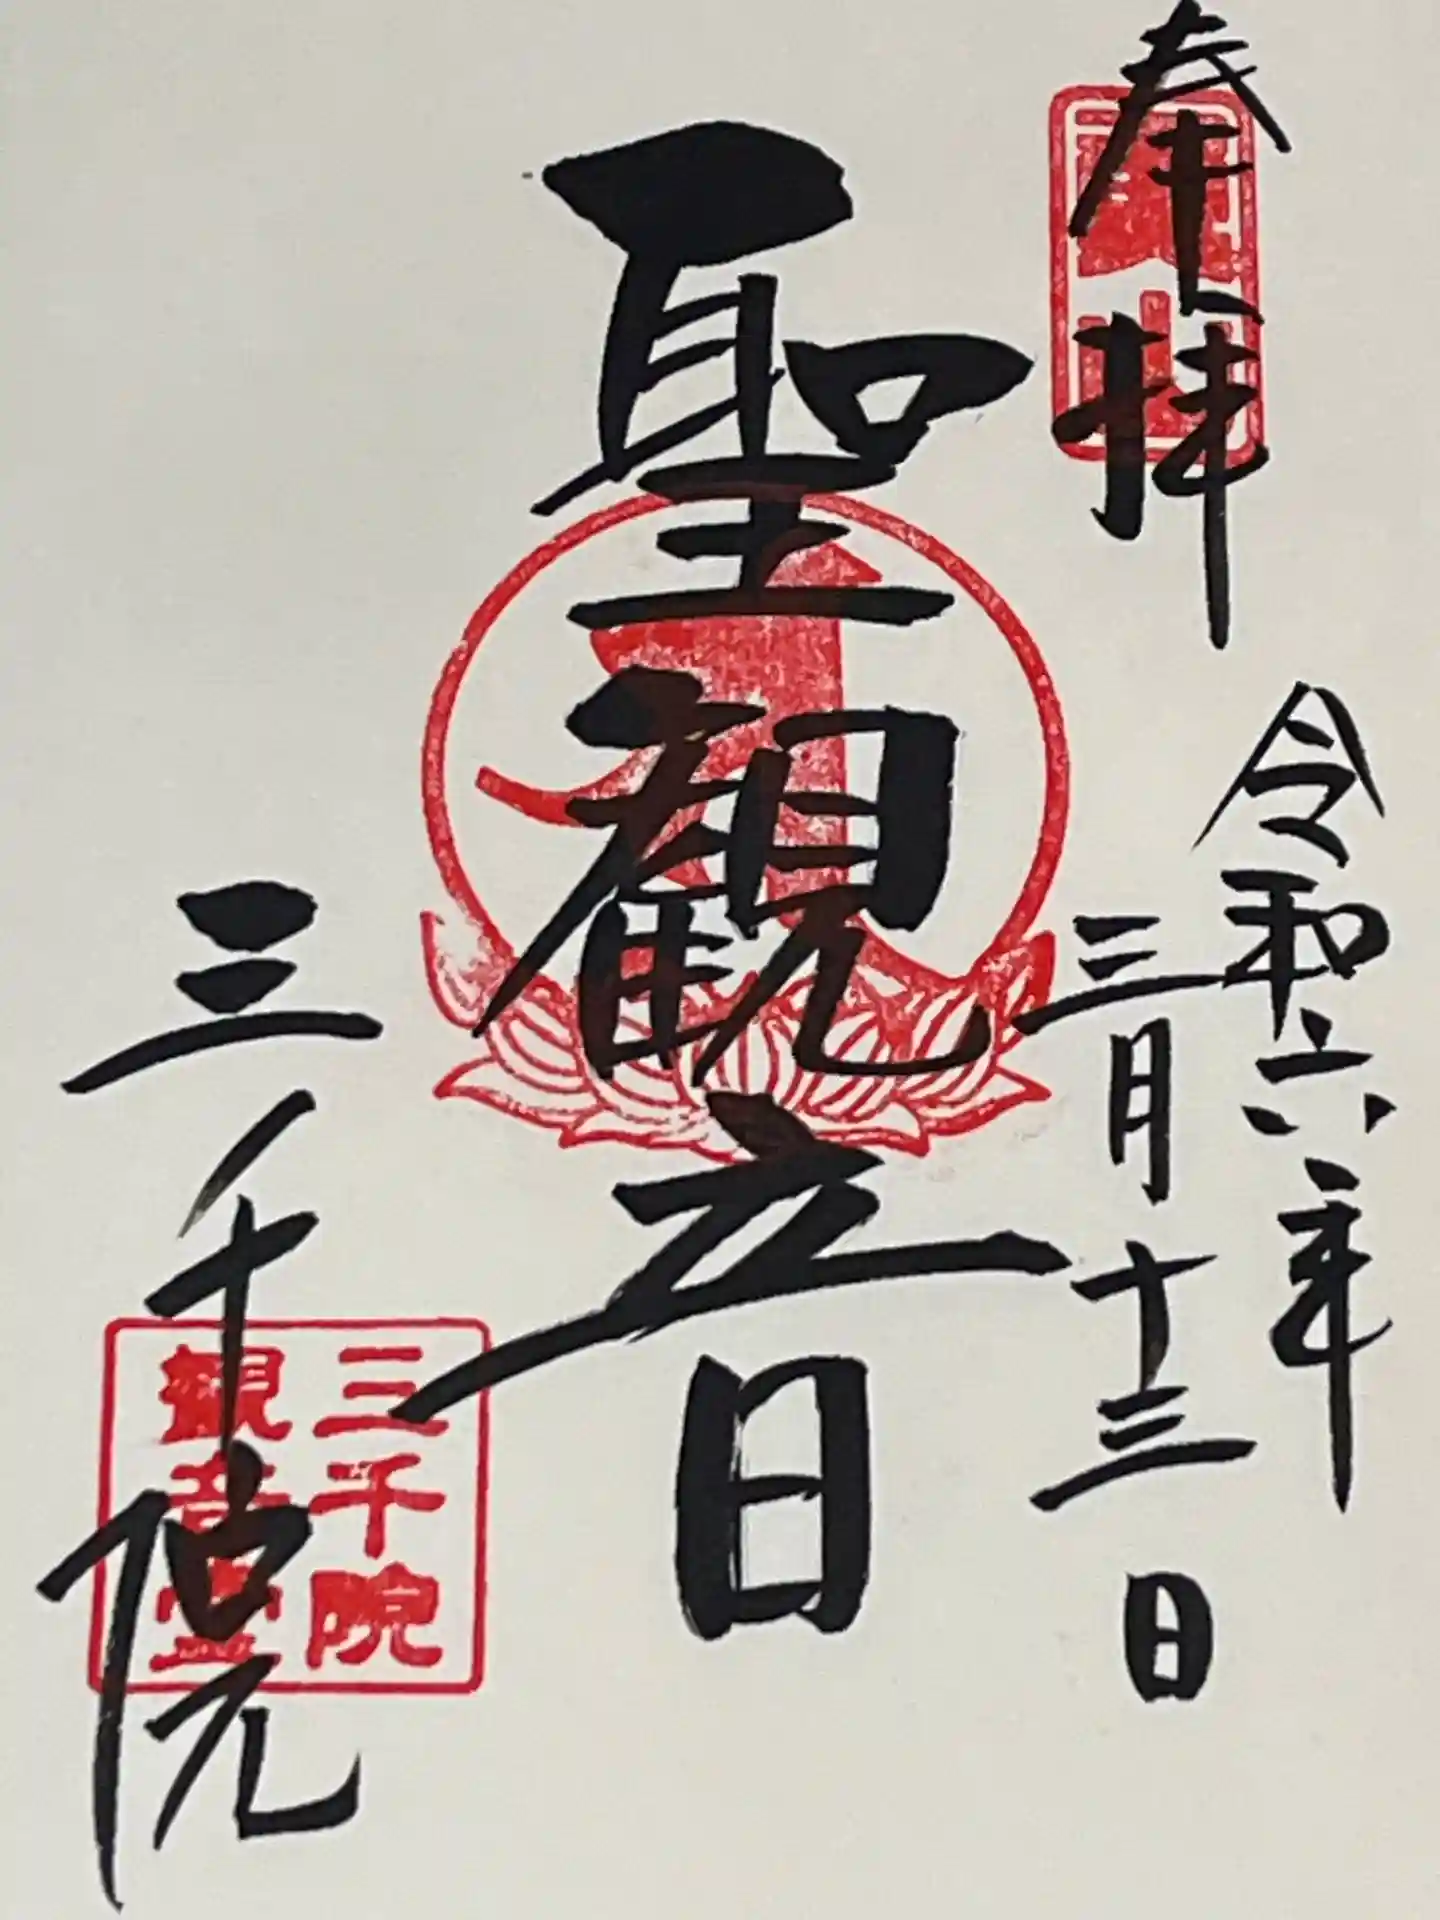 奉拝
令和六年
三月十三日
聖観音
三千院
三千院
観音堂